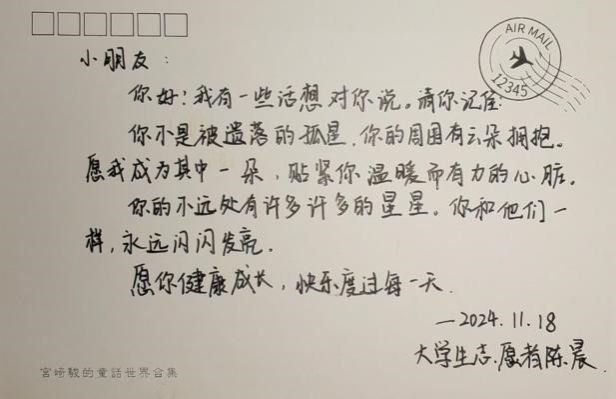 AIR MAIL
12345
小朋友：
你好！我有一些话想对你说。请你记住：
你不是被遗落的孤星，你的周围有云朵拥抱。
愿我成为其中一朵，贴紧你温暖而有力的心脏。
你的不远处有许多许多的星星。你和他们一
样，永远闪闪发亮.
愿你健康成长，快乐度过每一天.
—2024.11.18
大学生志愿者陈晨.
宮崎駿的童話世界合集